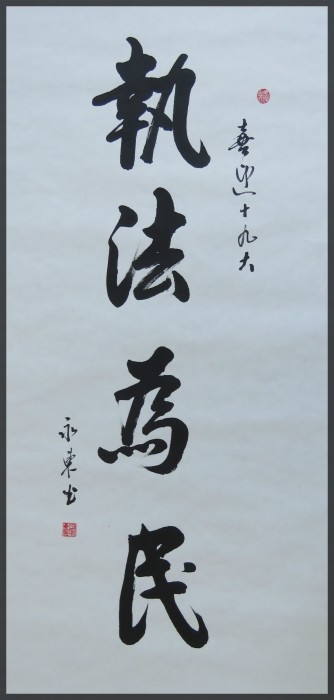 喜迎十九大
執法為民
永東书